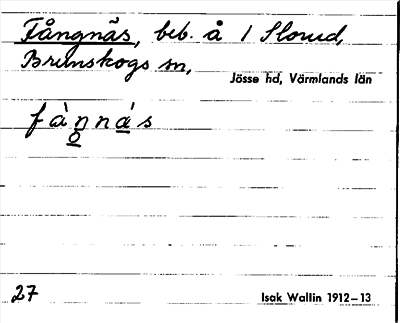 Fångnäs, beb. å 1 Slorud,
Brunskogs sn,
Jösse hd, Värmlands län
fàn̠n á̠ s
o̠
27
Isak Wallin 1912–13